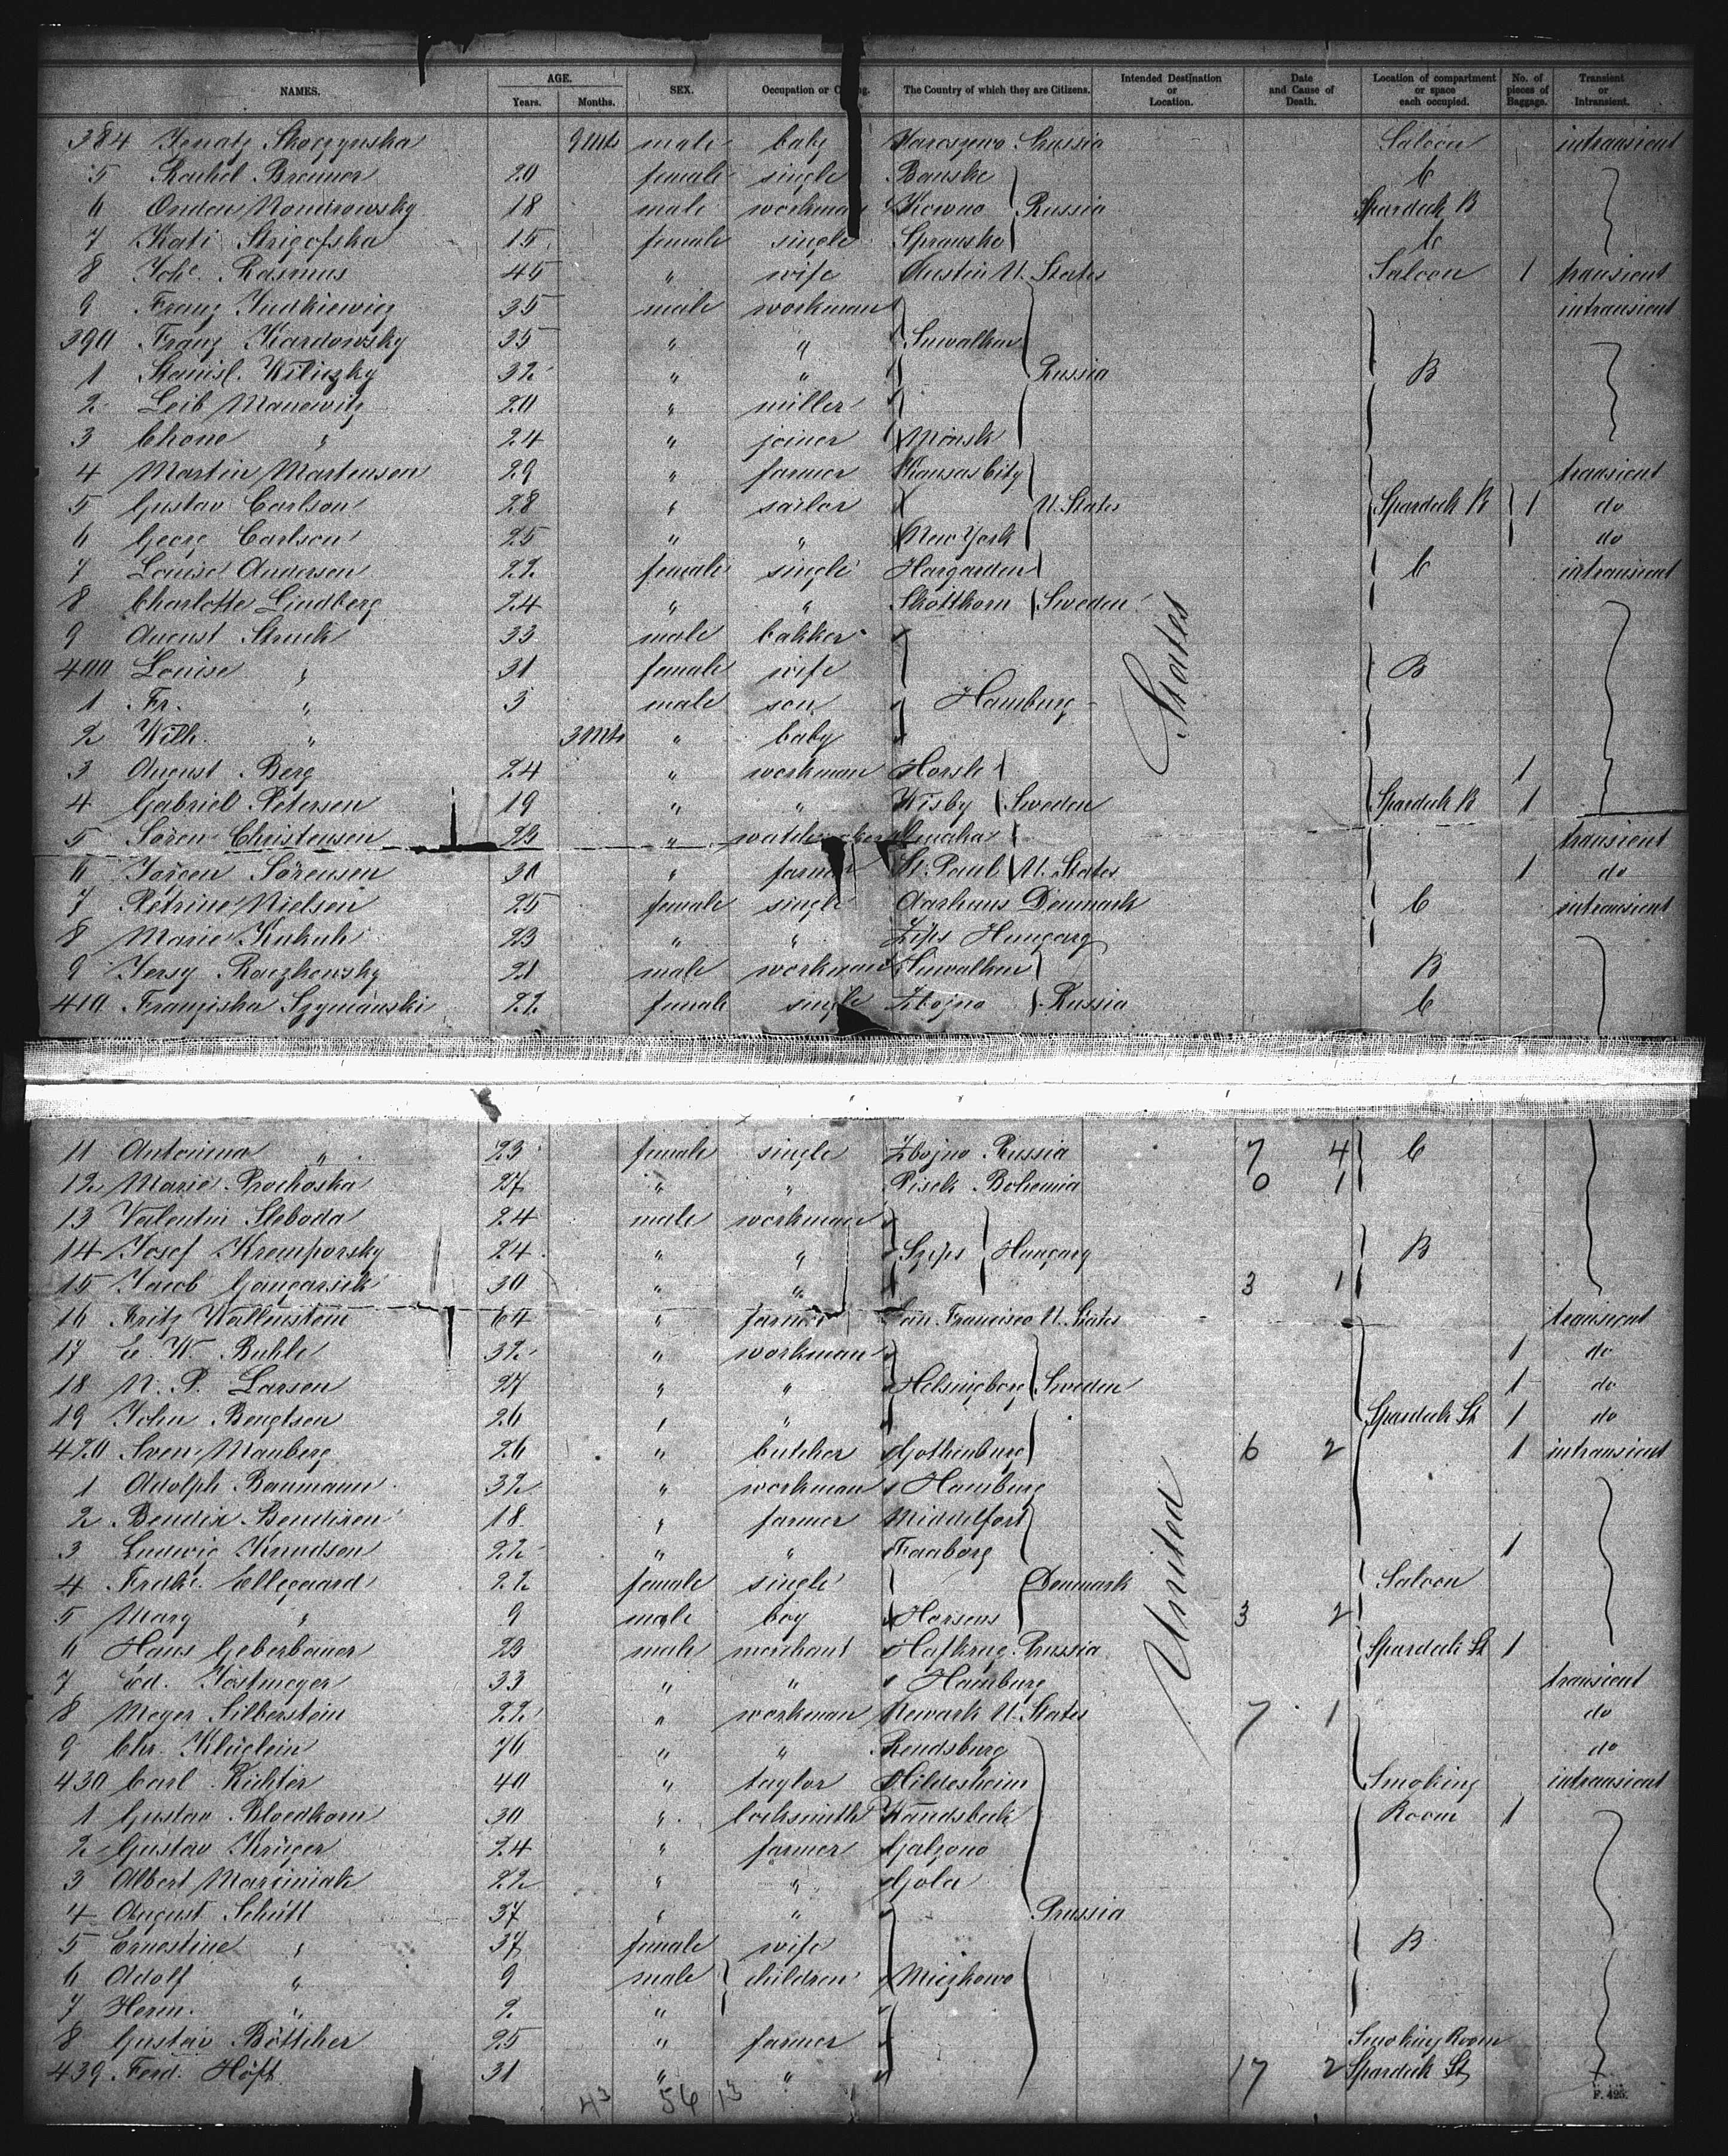 NAMES. AGE. Years. Months. SEX. Occupation or Calling. The Country of which they are Citizens. Intended Destination or Location. Date and Cause of Death. Location of compartment or space each occupied. No. of pieces of Baggage. Transient or Intransient.
384 Ignatz Skoczynska 9 Mts male baby Prussia Saloon intransient
5 Rachel Brenner 20 female single Bauske C
6 18 male workman Kowno Russia Spardeck B
7 Kati 15 female single C
8 Joh. Rasmus 45 " wife Austin U. States Saloon 1 transient
9 Franz Judkiewicz 35 male workman intransient
390 Franz Kardowsky 35 " " Suwalken
1 Stanisl. Wiliczky 32 " " Russia B
2 Leib Manewitz 20 " miller
3 Chone " 24 " joiner Minsk
4 Martin Martensen 29 " farmer Kansas City transient
5 Gustav Carlson 28 " sailor U. States Spardeck B 1 do
6 Georg Carlson 25 " " New York do
7 Louise Anderson 22 female single Hargarden C intransient
8 Charlotte Lindberg 24 " " Sweden
9 August Struck 33 male bakker
400 Louise " 31 female wife B
1 Fr. " 3 male son Hamburg
2 Wilh. " 3 Mts " baby
3 August Berg 24 " workman 1
4 Gabriel Petersen 19 " " Wisby Sweden Spardeck B 1
5 Sören Christensen 23 " Omaha transient
6 Jörgen Sörensen 30 " farmer St. Paul U. States 1 do
7 Petrine Nielsen 25 female single Aarhaus Denmark C intransient
8 Marie Kukuk 23 " " Zips Hungary
9 Jersy Raczkowsky 21 male workman Suwalken B
410 Franziska Szymanski 22 female single Zbojno Russia C
States
11 Antonina " 23 female single Zbojno Russia 7 4 C
12 Marie Prochaska 27 " " Pisek Bohemia 0 1
13 Valentin Sleboda 24 male workman
14 Josef Kremporsky 24 " " Szips Hungary B
15 Jacob Gangarsik 30 " " 3 1
16 Fritz Wallenstein 64 " farmer San Francisco U. States transient
17 W. Buhle 32 " workman 1 do
18 N. P. Larsen 27 " " Helsingborg Sweden 1 do
19 John Bengtsen 26 " " Spardeck St 1 do
420 Sven Manberg 26 " butcher Gothenburg 6 2 1 intransient
1 Adolph Baumann 32 " workman Hamburg
2 Bendix Bendixen 18 " farmer Middelfort
3 Ludwig Knudsen 22 " " Faaborg 1
4 Fredke. Ellegaard 22 female single Denmark Saloon
5 Marg " 9 male boy Horsens 3 2
6 Hans Geberbauer 23 male merchant Prussia Spardeck St 1
7 Ed. Jostmeyer 33 " " Hamburg transient
8 Meyer Silberstein 22 " workman Newark U. States 7 1 do
9 Chr. Klüglein 76 " " Rendsburg do
430 Carl Richter 40 " taylor Hildesheim Smoking intransient
1 Gustav Bloedhorn 30 " locksmith Wandsbeck Room 1
2 Gustav Krüger 24 " farmer
3 Albert Marciniak 22 " " Gola
4 August Schütt 37 " " Prussia
5 Ernestine " 37 female wife B
6 Adolf " 9 male children
7 Herm. " 2 "
8 Gustav Böttcher 25 " farmer Smoking Room
439 Ferd. Höft 31 " " 17 2 Spardeck St
United
43 56 13
F. 425.